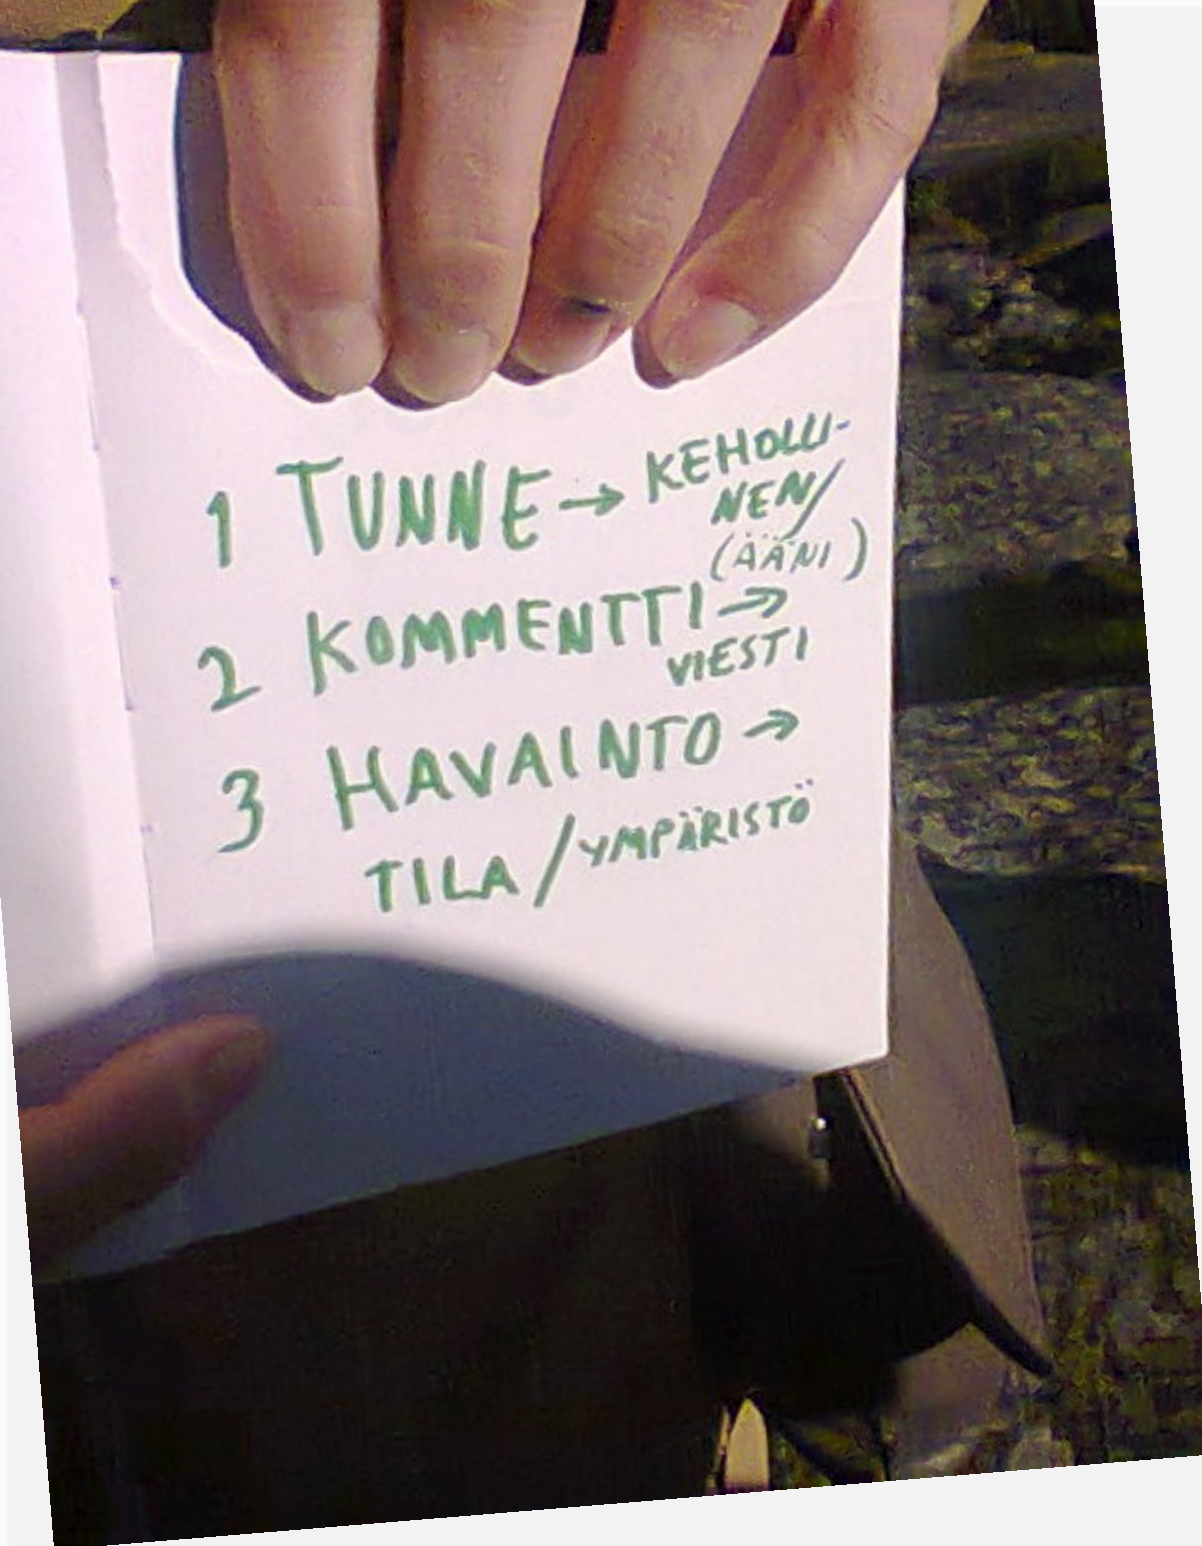 1 TUNNE → KEHOLLI-
NEN/
(ÄÄNI)
2 KOMMENTTI →
VIESTI
3 HAVAINTO →
TILA / YMPÄRISTÖ